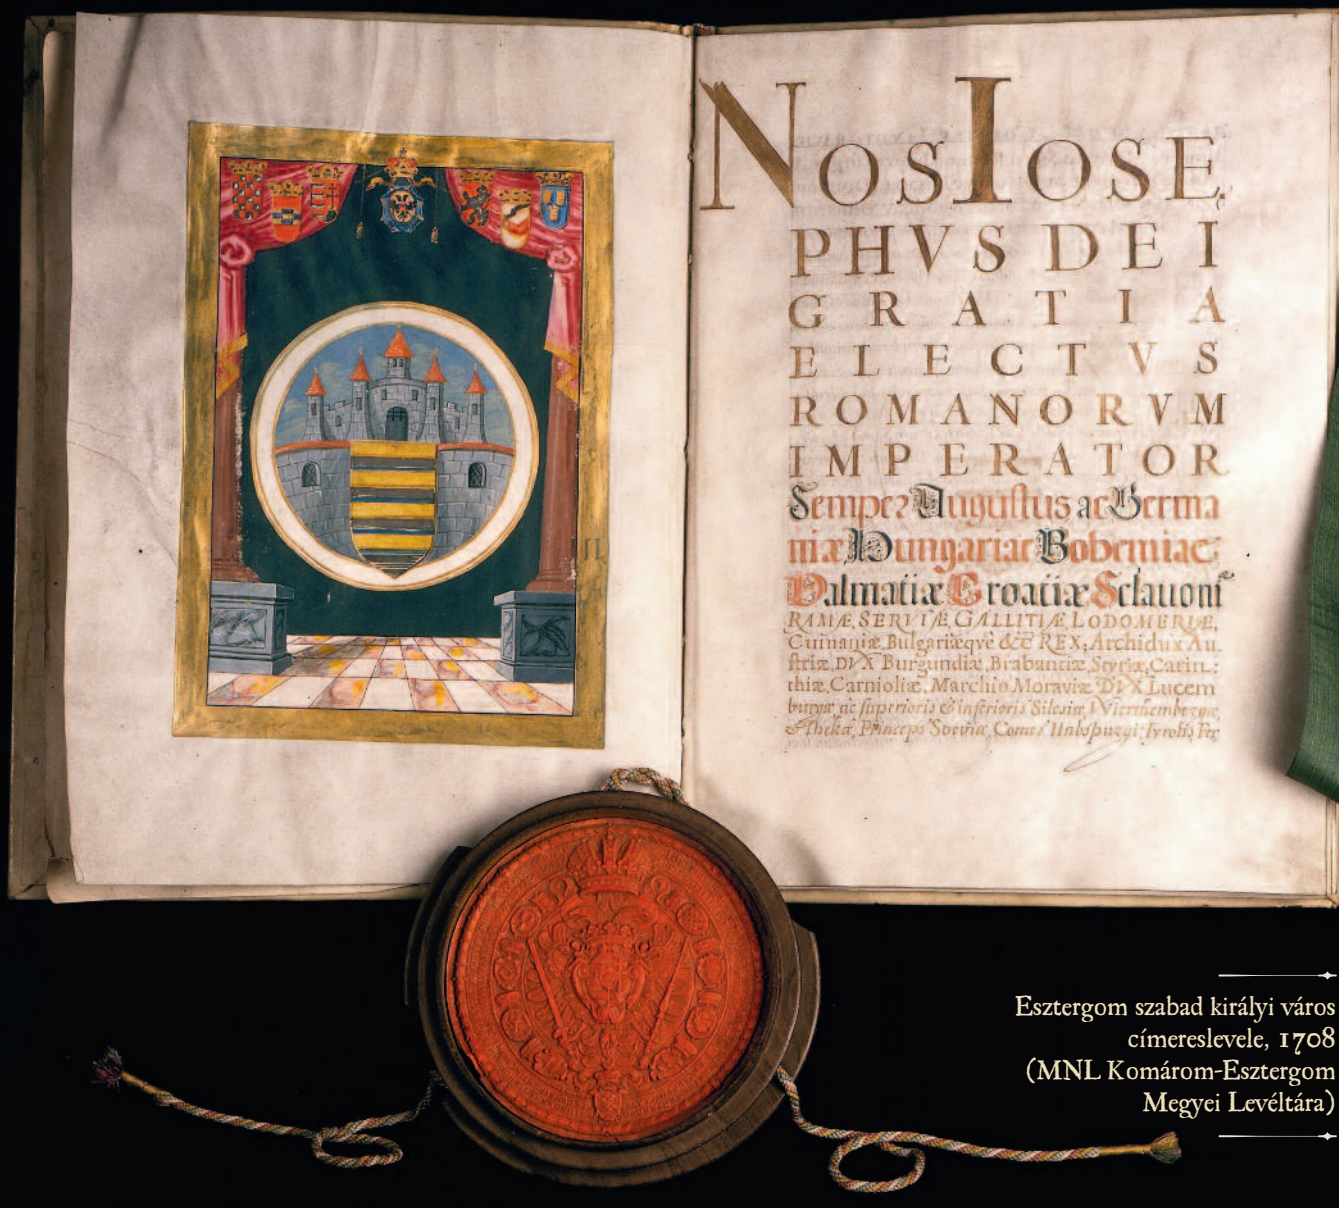 NOS IOSE
PHVS DEI
GRATIA
ELECTVS
ROMANORVM
IMPERATOR
Semper Augustus ac Germa
niæ Hungariae Bohemiae
Dalmatiæ Croatiæ Sclauoni
RAMÆ, SERVIÆ, GALLITIÆ, LODOMERIÆ,
Cumaniæ, Bulgariæqve &c REX; Archidux Au,
striæ, DVX Burgundiæ, Brabantiæ, Styriæ, Carin:
thiæ, Carnioliæ, Marchio Moraviæ DVX Lucem
burgæ, ac superioris & inferioris Silesiæ, Wirtembergæ,
& Thekæ, Princeps Sveviæ, Comes Habspurgi, Tyrolis, Fer
Esztergom szabad királyi város
címereslevele, 1708
(MNL Komárom-Esztergom
Megyei Levéltára)